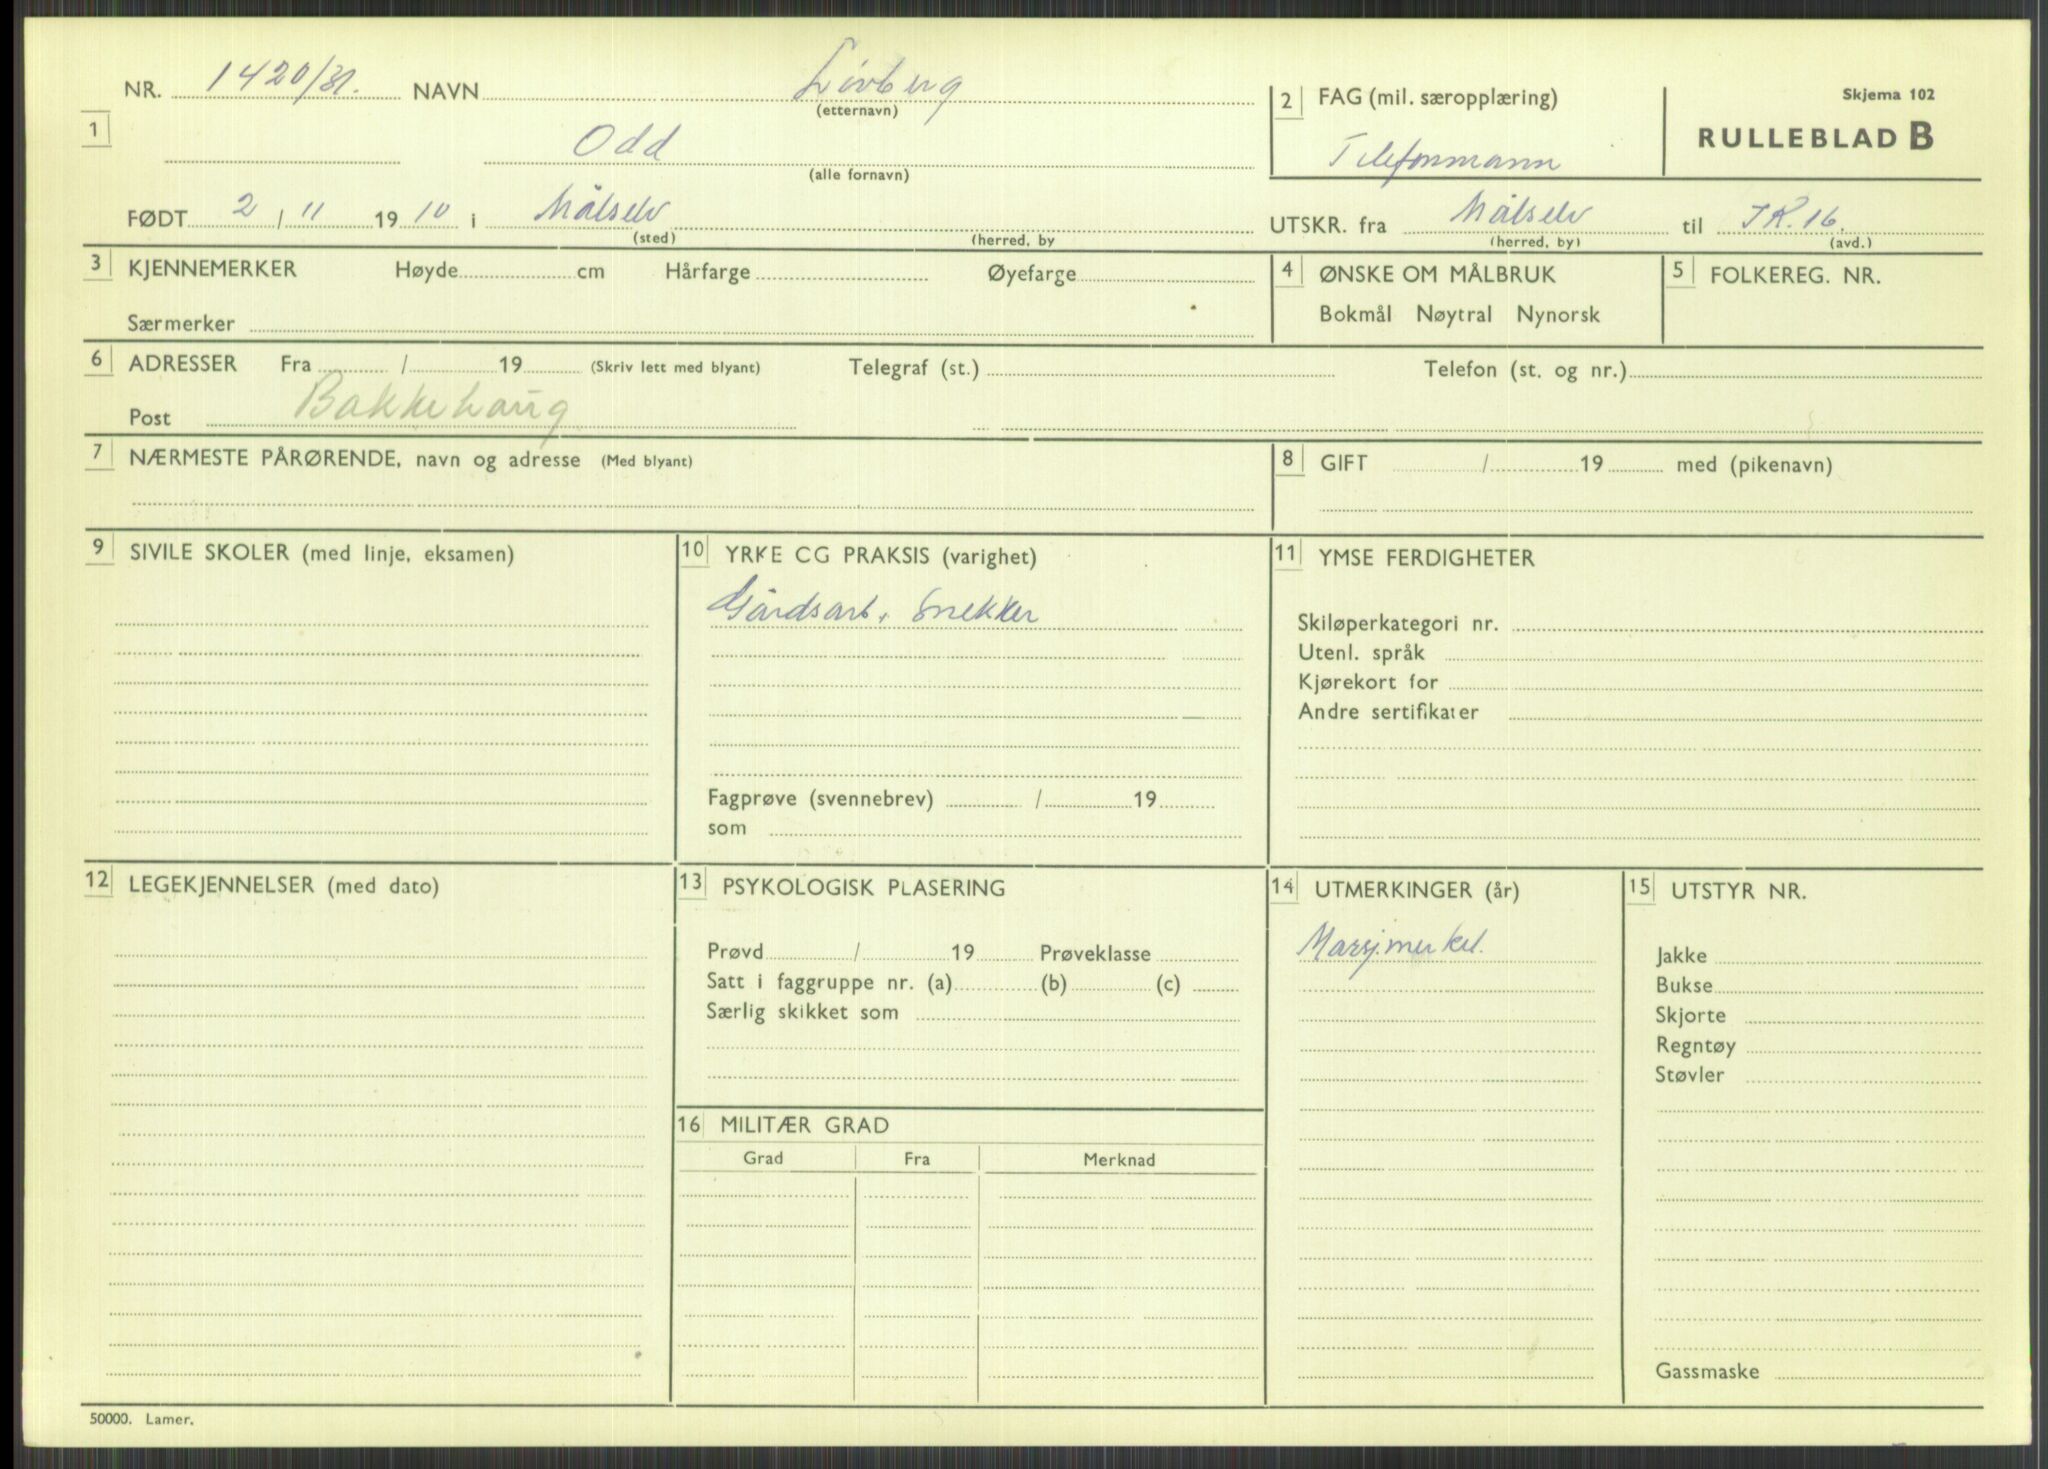 NR. 1420/31. NAVN Løvberg
(etternavn)
1
Odd
(alle fornavn)
FØDT 2 / 11 1910 i Målselv
(sted) (herred, by
2 FAG (mil. særopplæring)
Telefonmann
Skjema 102
RULLEBLAD B
UTSKR. fra Målselv til IR.16.
(herred, by) (avd.)
3 KJENNEMERKER Høyde cm Hårfarge Øyefarge
Særmerker
4 ØNSKE OM MÅLBRUK
Bokmål Nøytral Nynorsk
5 FOLKEREG. NR.
6 ADRESSER Fra / 19 (Skriv lett med blyant) Telegraf (st.) Telefon (st. og nr.)
Post Bakkehaug
7 NÆRMESTE PÅRØRENDE, navn og adresse (Med blyant)
8 GIFT / 19 med (pikenavn)
9 SIVILE SKOLER (med linje, eksamen)
10 YRKE CG PRAKSIS (varighet)
Gårdsarb, Snekker
Fagprøve (svennebrev) / 19
som
11 YMSE FERDIGHETER
Skiløperkategori nr.
Utenl. språk
Kjørekort for
Andre sertifikater
12 LEGEKJENNELSER (med dato)
13 PSYKOLOGISK PLASERING
Prøvd / 19 Prøveklasse
Satt i faggruppe nr. (a) (b) (c)
Særlig skikket som
14 UTMERKINGER (år)
Marsjmerket.
15 UTSTYR NR.
Jakke
Bukse
Skjorte
Regntøy
Støvler
Gassmaske
16 MILITÆR GRAD
Grad Fra Merknad
50000. Lamer.